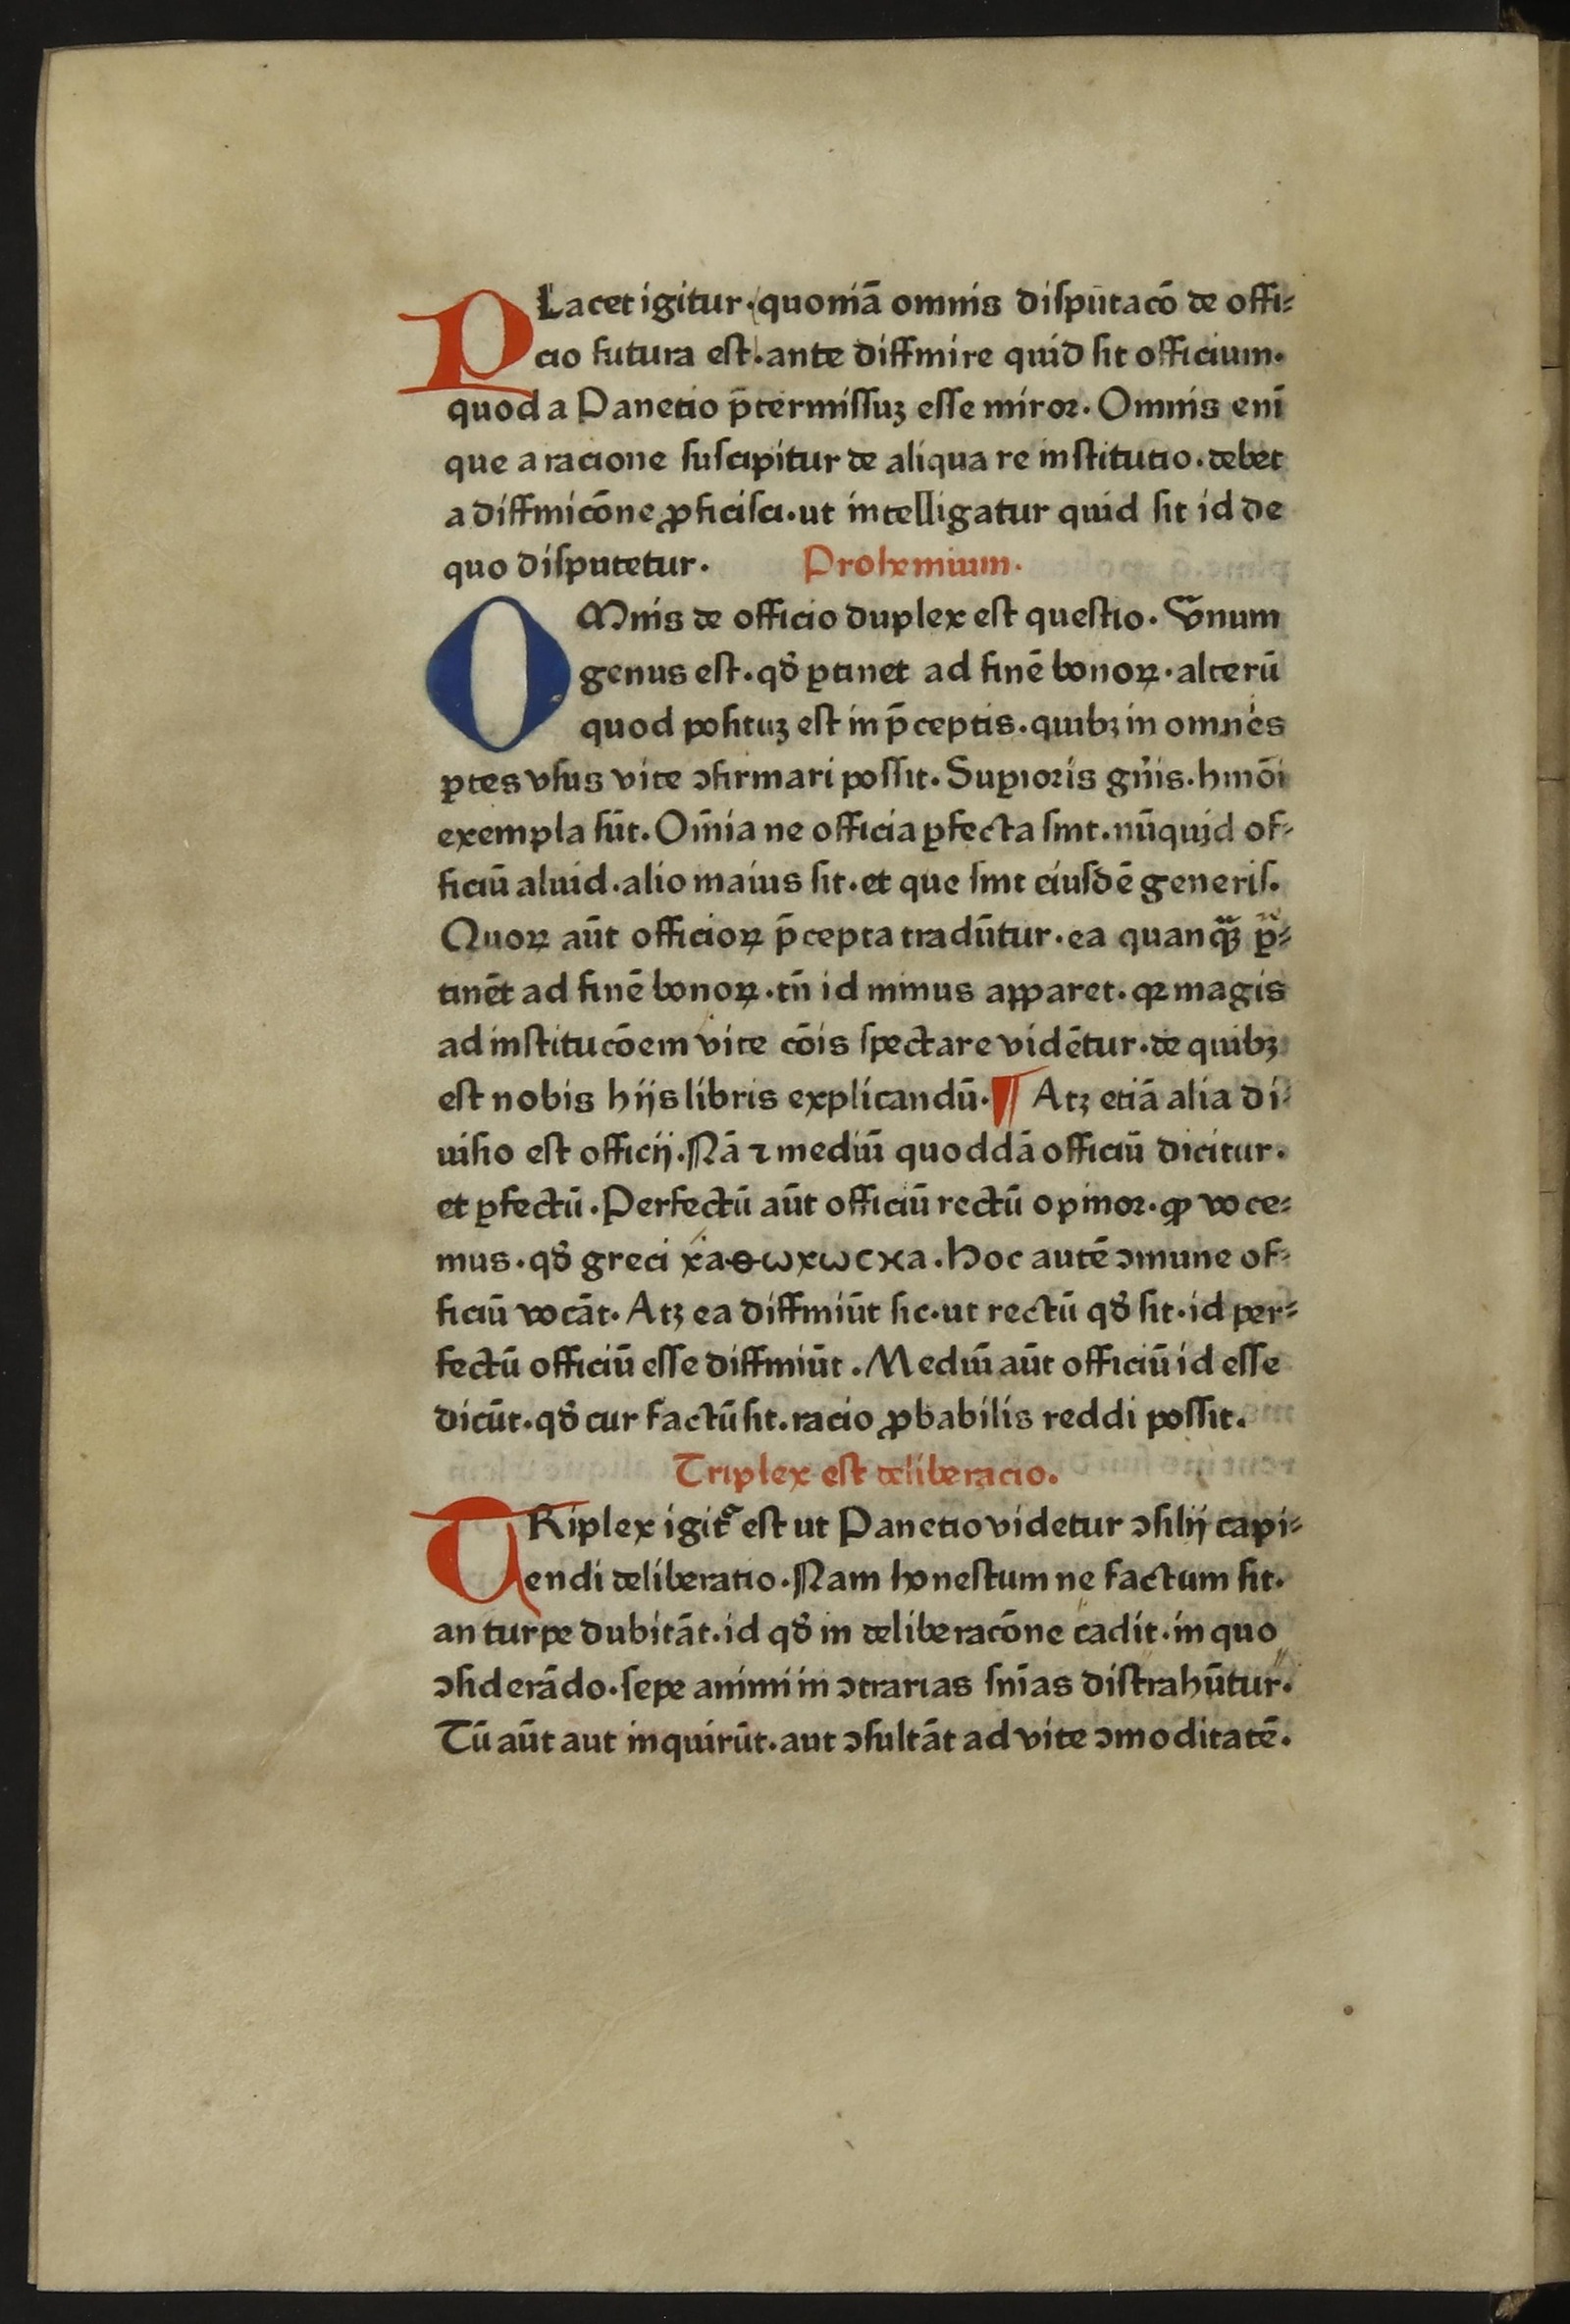 PLacet igitur·quoniā omnis diſputacō de offi⸗
cio futura eſt.ante diffinire quid ſit officium.
quod a Panetio p̄termiſſuꝫ eſſe miroꝛ. Omnis enī
que a racione ſuſcipitur de aliqua re inſtitutio.debet
a diffinicōne ꝓficiſci.ut intelligatur quid ſit id de
quo diſputetur. Prohemium.
OMnis de officio duplex eſt queſtio. Vnum
genus eſt.qđ ꝑtinet ad finē bonoꝝ.alterū
quod poſituꝫ eſt in p̄ceptis.quibꝫ in omnes
ꝑtes vſus vite ↄfirmari poſſit. Suꝑioꝛis gn̄is.hmōi
exempla ſūt. Om̄ia ne officia ꝑfecta ſint.nūquid of⸗
ficiū aluid.alio maius ſit.et que ſint eiuſdē generiſ.
Quoꝝ aūt officioꝝ p̄cepta tradūtur.ea quanqꝫ̈ ꝑ⸗
tinēt ad finē bonoꝝ.tn̄ id minus apparet.qꝛ magis
ad inſtitucōem vite cōis ſpectare vidētur.de quibꝫ
eſt nobis hijs libris explicandū.¶ Atꝫ etiā alia di⸗
uiſio eſt officij. Nā ⁊ mediū quoddā officiū dicitur.
et ꝑfectū. Perfectū aūt officiū rectū opinoꝛ.ꝙ voce⸗
mus.qđ greci χαθωχωϲχα. Hoc autē ↄmune of⸗
ficiū vocāt. Atꝫ ea diffiniūt ſic.ut rectū qđ ſit.id per⸗
fectū officiū eſſe diffiniūt. Mediū aūt officiū id eſſe
dicūt.qđ cur factū ſit.racio ꝓbabilis reddi poſſit.
Triplex eſt deliberacio.
TRiplex igit᷑ eſt ut Panetio videtur ↄſilij capi⸗
endi deliberatio. Nam honeſtum ne factum ſit.
an turpe dubitāt.id qđ in deliberacōne cadit.in quo
ↄſiderādo.ſepe animi in ↄtrarias ſnīas diſtrahūtur.
Tū aūt aut inquirūt.aut ↄſultāt ad vite ↄmoditatē.